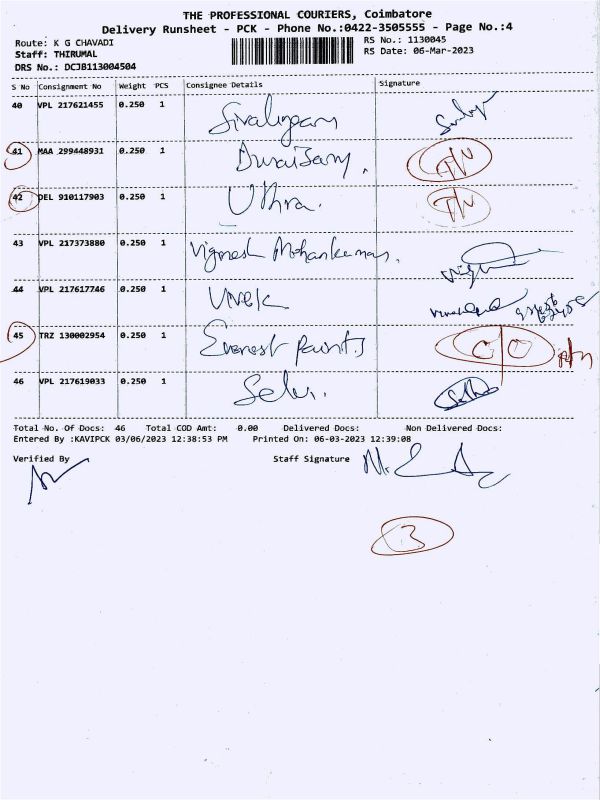 THE PROFESSIONAL COURIERS, Coimbatore
Delivery Runsheet - PCK - Phone No.:0422-3505555 - Page No.:4
Route: K G CHAVADI
RS No.: 1130045
Staff: THIRUMAL
RS Date: 06-Mar-2023
DRS No.: DCJB113004504
S No Consignment No Weight PCS Consignee Details Signature
40 VPL 217621455 0.250 1
41 MAA 299448931 0.250 1
42 DEL 910117903 0.250 1 Uthra.
43 VPL 217373880 0.250 1 Vignesh Mohankumar.
44 VPL 217617746 0.250 1 Vivek
45 TRZ 130002954 0.250 1 Everest Paints C/O
46 VPL 217619033 0.250 1
Total No. Of Docs: 46 Total COD Amt: 0.00 Delivered Docs: Non Delivered Docs:
Entered By :KAVIPCK 03/06/2023 12:38:53 PM Printed On: 06-03-2023 12:39:08
Verified By Staff Signature
3